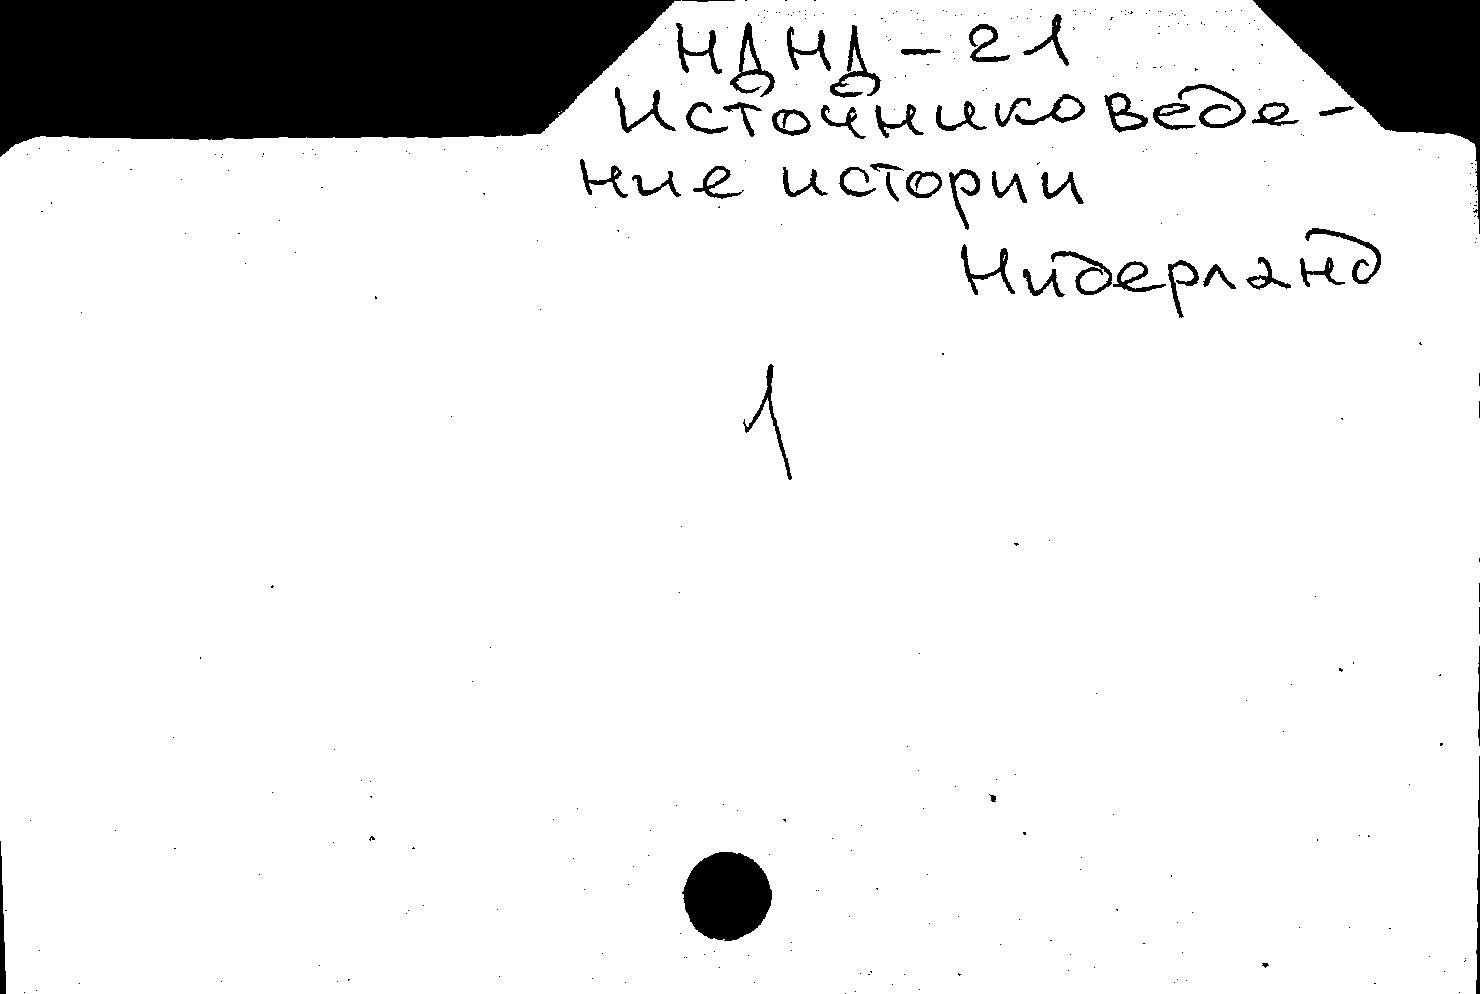 НДНД-21
Источниковеде-
ние истории
Нидерланд
1